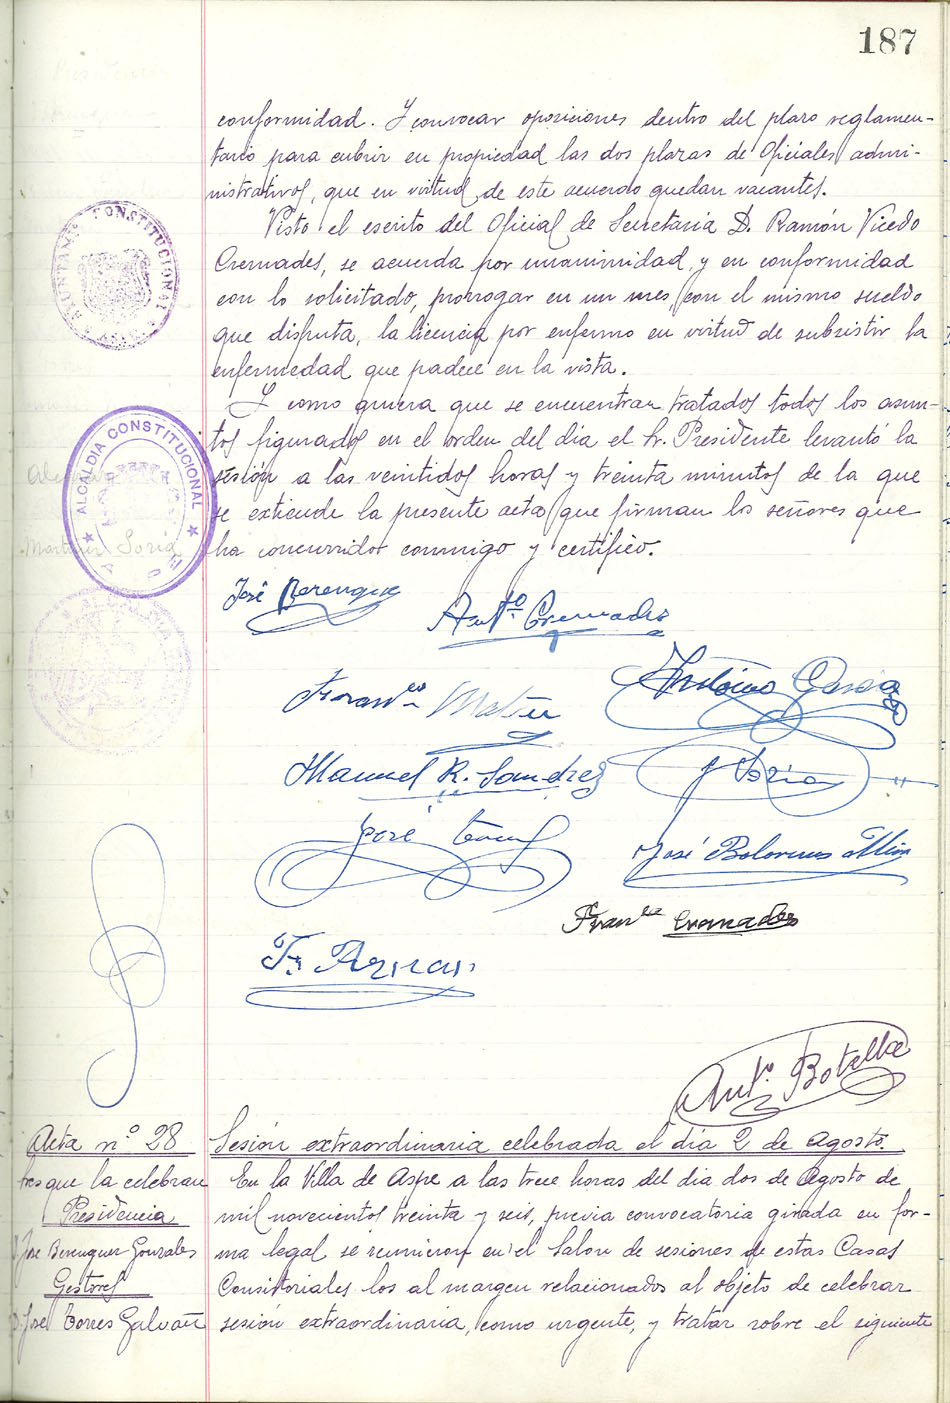 187
conformidad. Y convocar oposiciones dentro del plazo reglamen-
tario para cubrir en propiedad las dos plazas de Oficiales admi-
nistrativos, que en virtud de este acuerdo quedan vacantes.
Visto el escrito del Oficial de Secretaría D. Ramón Vicedo
Cremades, se acuerda por unanimidad, y en conformidad
con lo solicitado, prorrogar en un mes, con el mismo sueldo
que disfruta, la licencia por enfermo en virtud de subsistir la
enfermedad que padece en la vista.
Y como quiera que se encuentran tratados todos los asun-
tos figurados en el orden del día el Sr. Presidente levantó la
sesión a las veintidos horas y treinta minutos de la que
se extiende la presente acta que firman los señores que
ha concurridos conmigo y certifico.
AYUNTAMI CONSTITUCIONAL
ALCALDIA CONSTITUCIONAL
Martinez Soria
José Berenguer
Antº Cremades
Franco Mateu
Antonio Garcia
Manuel R. Sanchez
J Soria
José
José Bolorinos Mira
Franco Cremades
Antº. Botella
Acta nº 28
tres que la celebran
Presidencia
D. José Berenguer Gonzales
Gestores
D. José Torres Galvañ
Sesión extraordinaria celebrada el día 2 de Agosto.
En la Villa de Aspe a las trece horas del dia dos de Agosto de
mil novecientos treinta y seis, previa convocatoria girada en for-
ma legal se reunieron en el Salon de sesiones de estas Casas
Consistoriales los al margen relacionados al objeto de celebrar
sesión extraordinaria, como urgente, y tratar sobre el siguiente